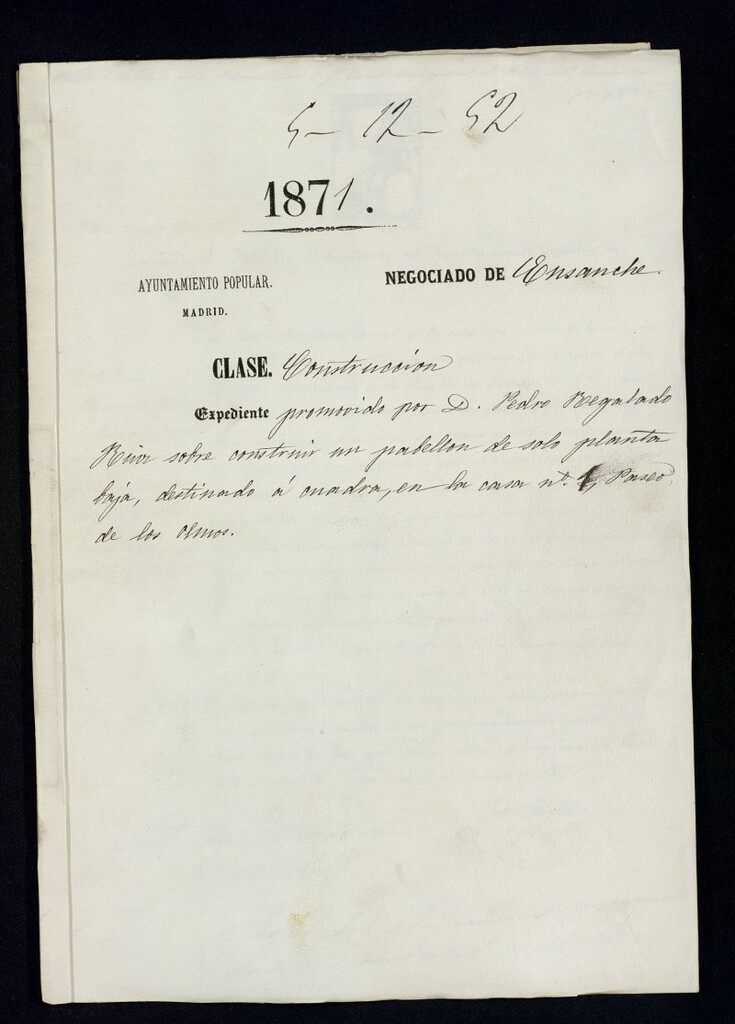 5 - 12 - 52
1871.
AYUNTAMIENTO POPULAR.
MADRID.
NEGOCIADO DE Ensanche
CLASE. Construccion
Expediente promovido por D. Pedro Regalado
sobre construir un pabellon de solo planta
baja, destinado á cuadra, en la casa nº. 1, Paseo
de los Olmos.